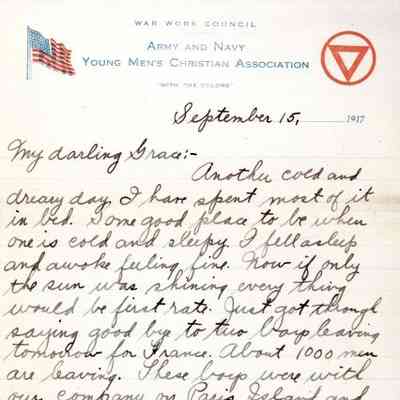 WAR WORK COUNCIL
ARMY AND NAVY
YOUNG MEN'S CHRISTIAN ASSOCIATION
"WITH THE COLORS"
September 15, 1917
My darling Grace:-
Another cold and
dreary day. I have spent most of it
in bed. Some good place to be when
one is cold and sleepy. I fell asleep
and awoke feeling fine. Now if only
the sun was shining every thing
would be first rate. Just got through
saying good bye to two boys leaving
tomorrow for France. About 1000 men
are leaving. These boys were with
our company on Paris Island and